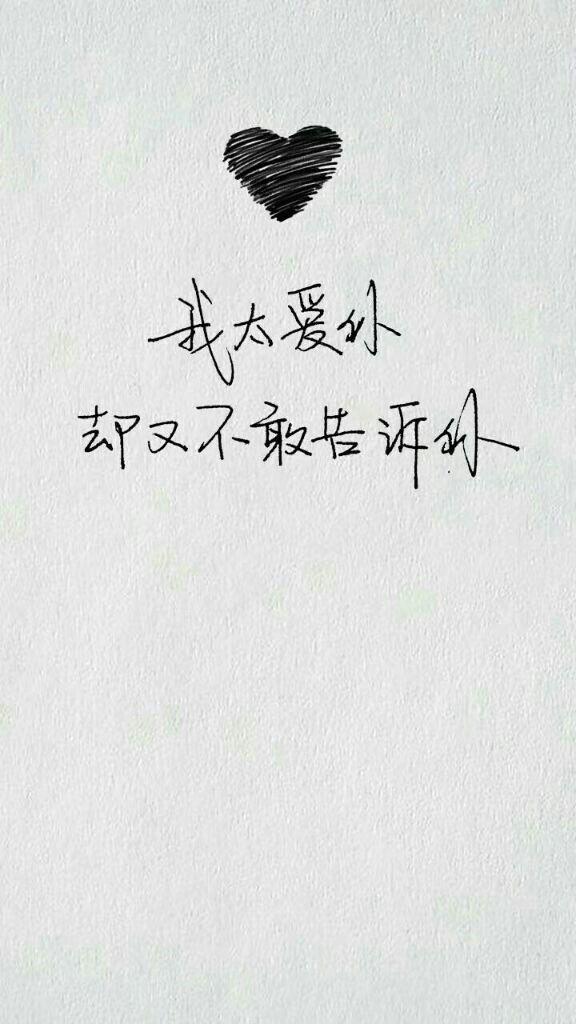 我太爱你
却又不敢告诉你